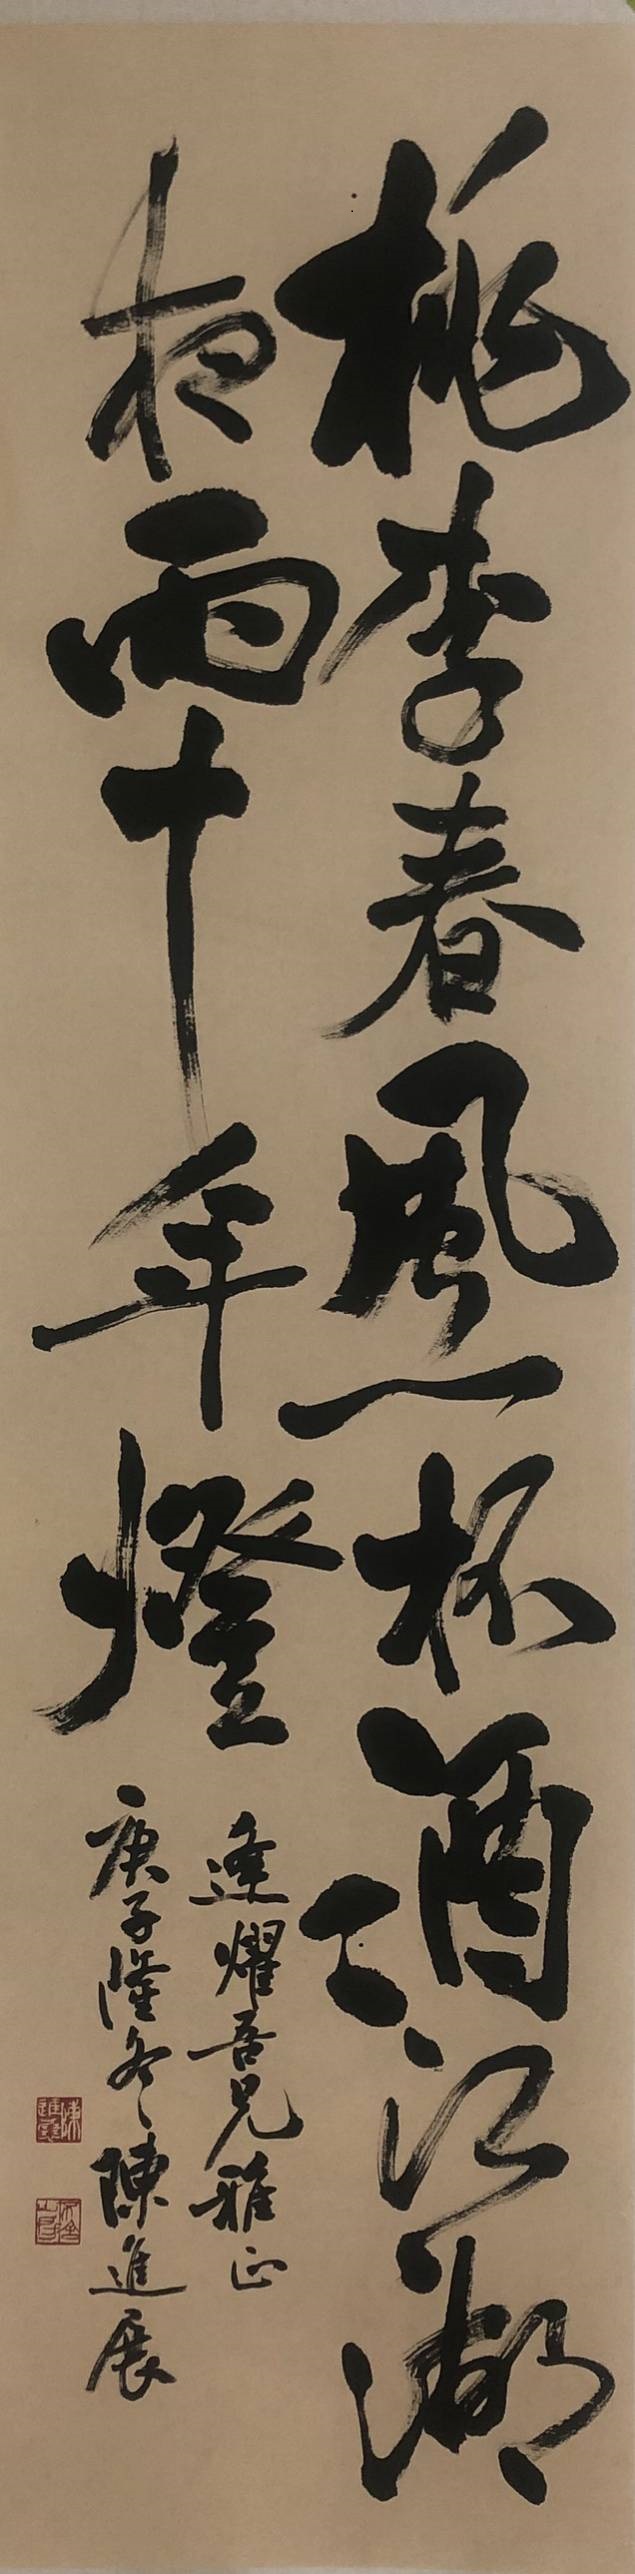 桃李春風一杯酒江湖
夜雨十年燈
逢耀吾兄雅正
庚子隆冬陳進展
陳進展